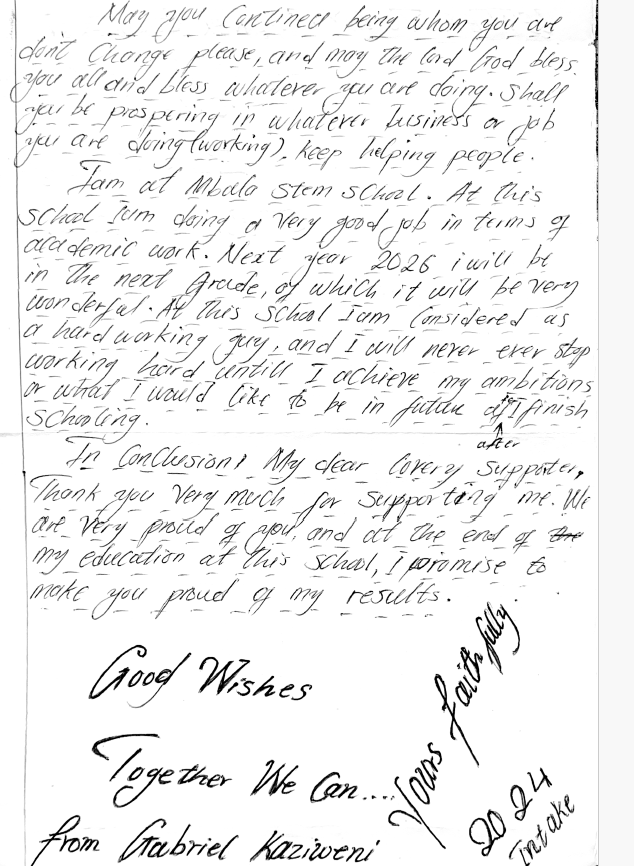 May you Continue being whom you are
don't Change please, and may the lord God bless
you all and bless whatever you are doing. Shall
you be prospering in whatever business or job
you are doing (working), keep helping people.
I am at Mbala Stem School. At this
school I am doing a very good job in terms of
academic work. Next year 2026 i will be
in the next Grade, of which it will be very
wonderful. At this School I am Considered as
a hard working guy, and I will never ever stop
working hard untill I achieve my ambitions
or what I would like to be in future I finish
schooling.
after
In Conclusion, My dear lovery supporter,
Thank you very much for supporting me. We
are very proud of you, and at the end of the
my education at this school, I promise to
make you proud of my results.
Good Wishes
Together We Can....
from Gabriel Kaziweni
Yours faithfully
2024
Intake